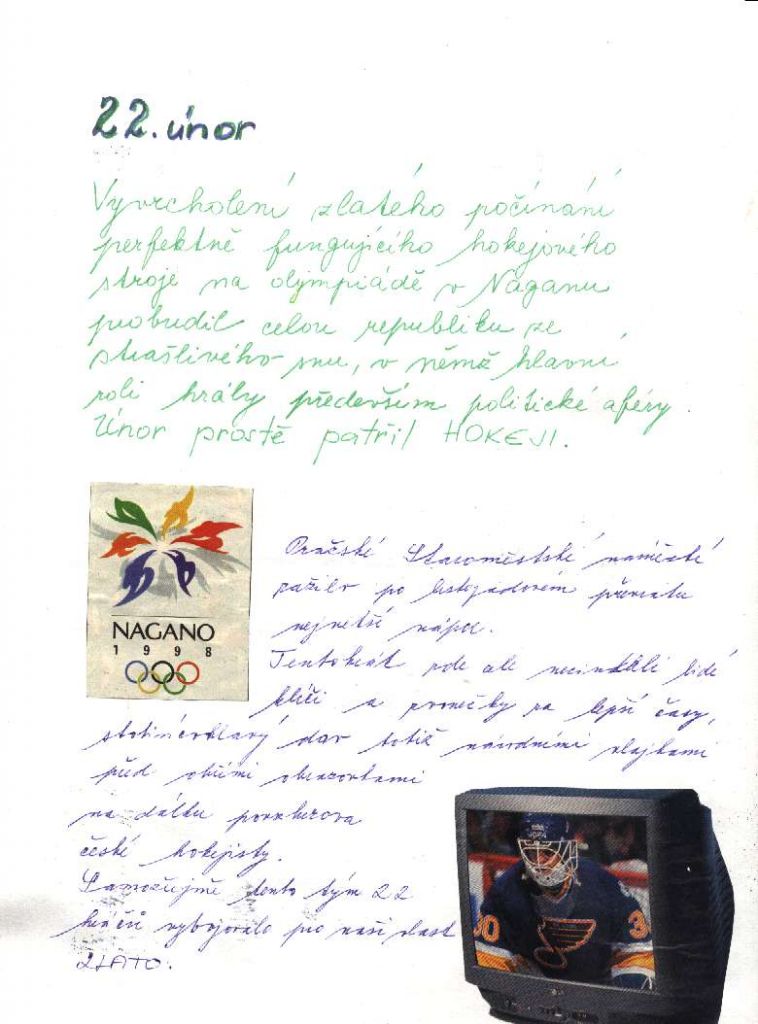 22. únor
Vyvrcholení zlatého počínání
perfektně fungujícího hokejového
stroje na olympiádě v Naganu
probudil celou republiku ze
strašlivého snu, v němž hlavní
roli hrály především politické aféry.
Únor prostě patřil HOKEJI.
NAGANO
1998
Pražské Staroměstské náměstí
zažilo po listopadovém převratu
největší nápor.
Tentokrát zde ale necinkali lidé
klíči a prsničky za lepší časy,
stotisícihlavý dav totiž národními vlajkami
před obřími obrazovkami
na dálku povzbuzoval
české hokejisty.
Samozřejmě tento tým 22
hráčů vybojovalo pro naši vlast
ZLATO.
30
30